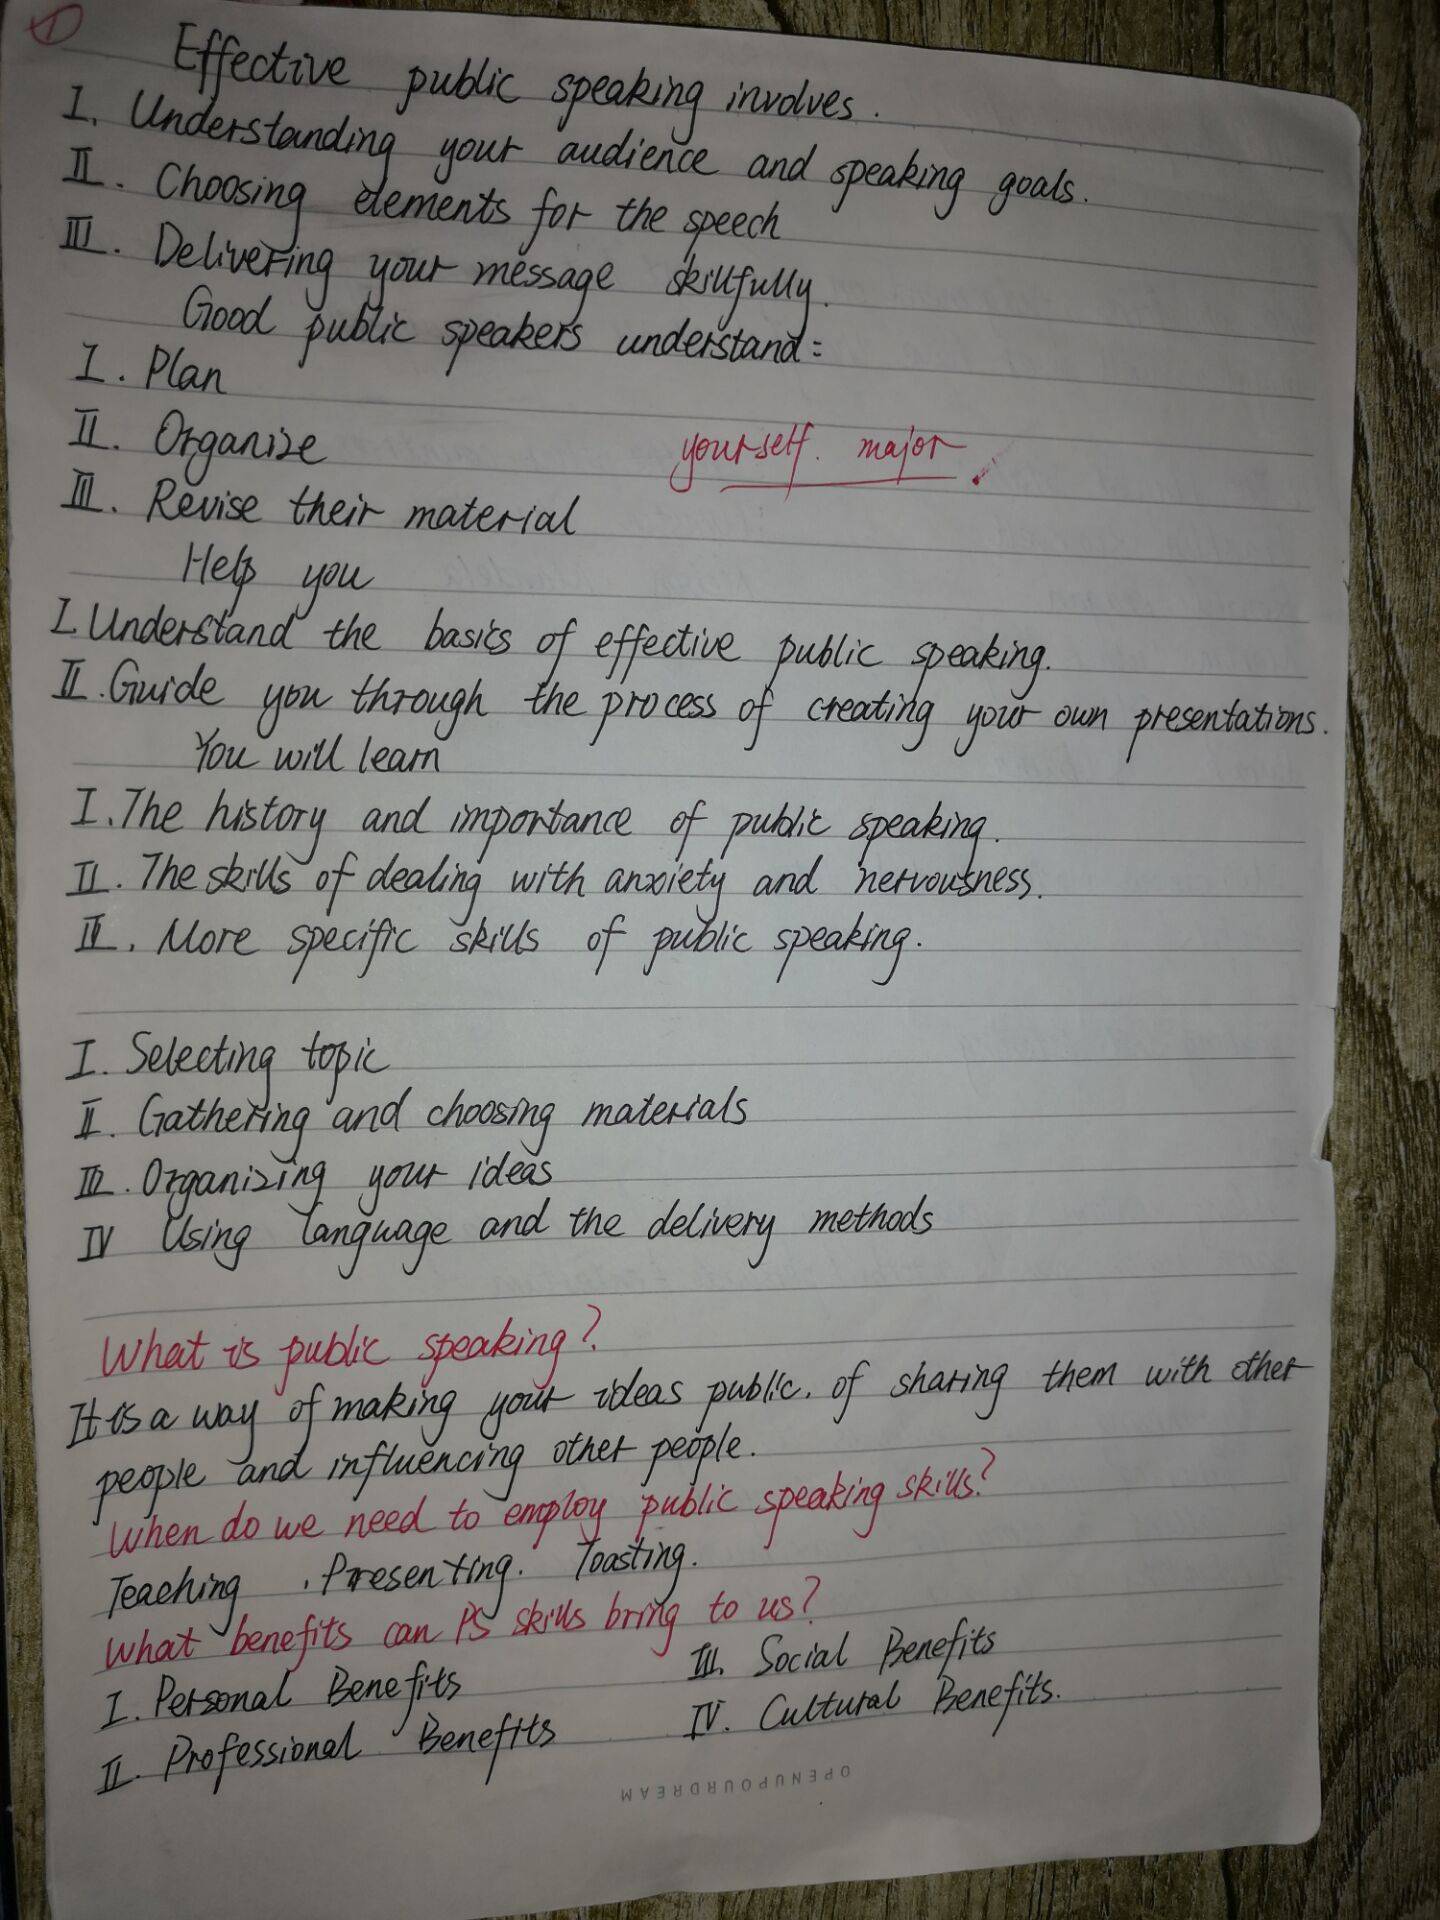 1
Effective public speaking involves.
I. Understanding your audience and speaking goals.
II. Choosing elements for the speech
III. Delivering your message skillfully.
Good public speakers understand:
I. Plan
II. Organize
yourself. major
III. Revise their material
Help you
I. Understand the basics of effective public speaking.
II. Guide you through the process of creating your own presentations.
You will learn
I. The history and importance of public speaking.
II. The skills of dealing with anxiety and nervousness.
III. More specific skills of public speaking.
I. Selecting topic
II. Gathering and choosing materials
III. Organizing your ideas
IV Using language and the delivery methods
What is public speaking?
It is a way of making your ideas public, of sharing them with other
people and influencing other people.
When do we need to employ public speaking skills?
Teaching . Presenting. Toasting.
What benefits can PS skills bring to us?
I. Personal Benefits
II. Professional Benefits
III. Social Benefits
IV. Cultural Benefits.
OPENUPOURDREAM